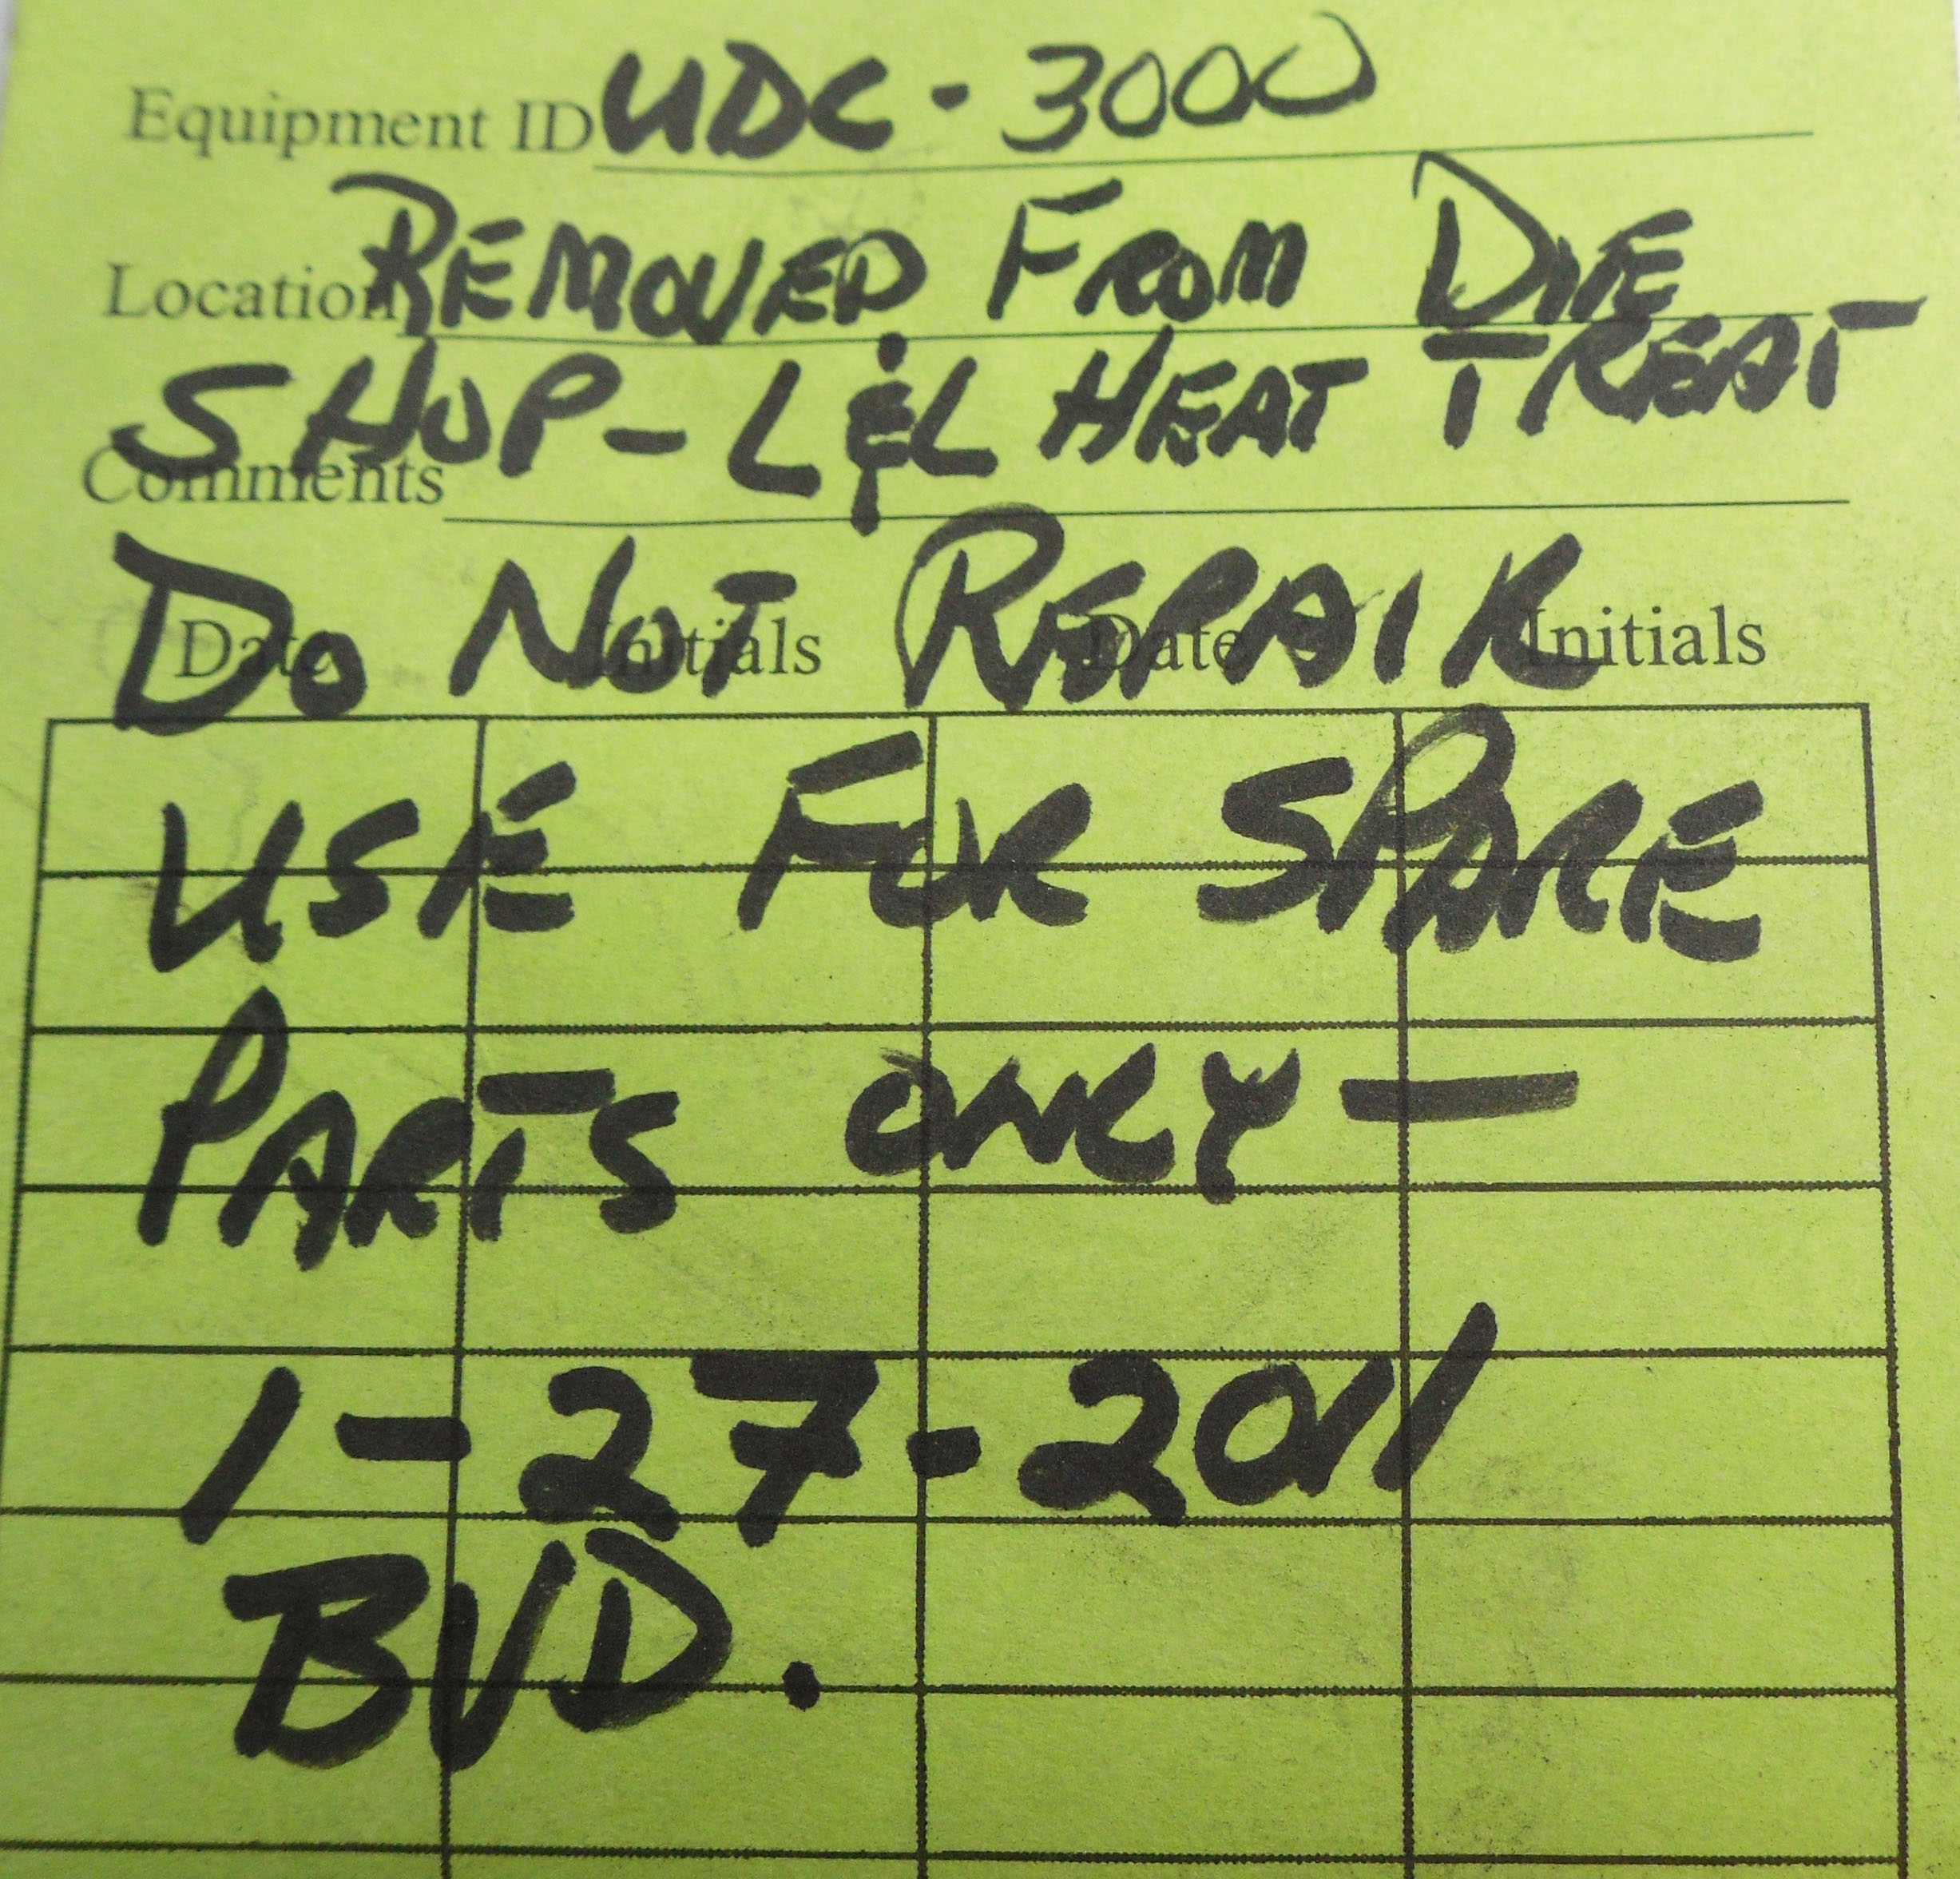 Equipment ID UDC - 3000
Location REMOVED FROM DIE
SHOP - L&L HEAT TREAT
Comments
DO NOT REPAIR
Date Initials Date Initials
USE FOR SPARE
PARTS ONLY -
1-27-2011
BVD.